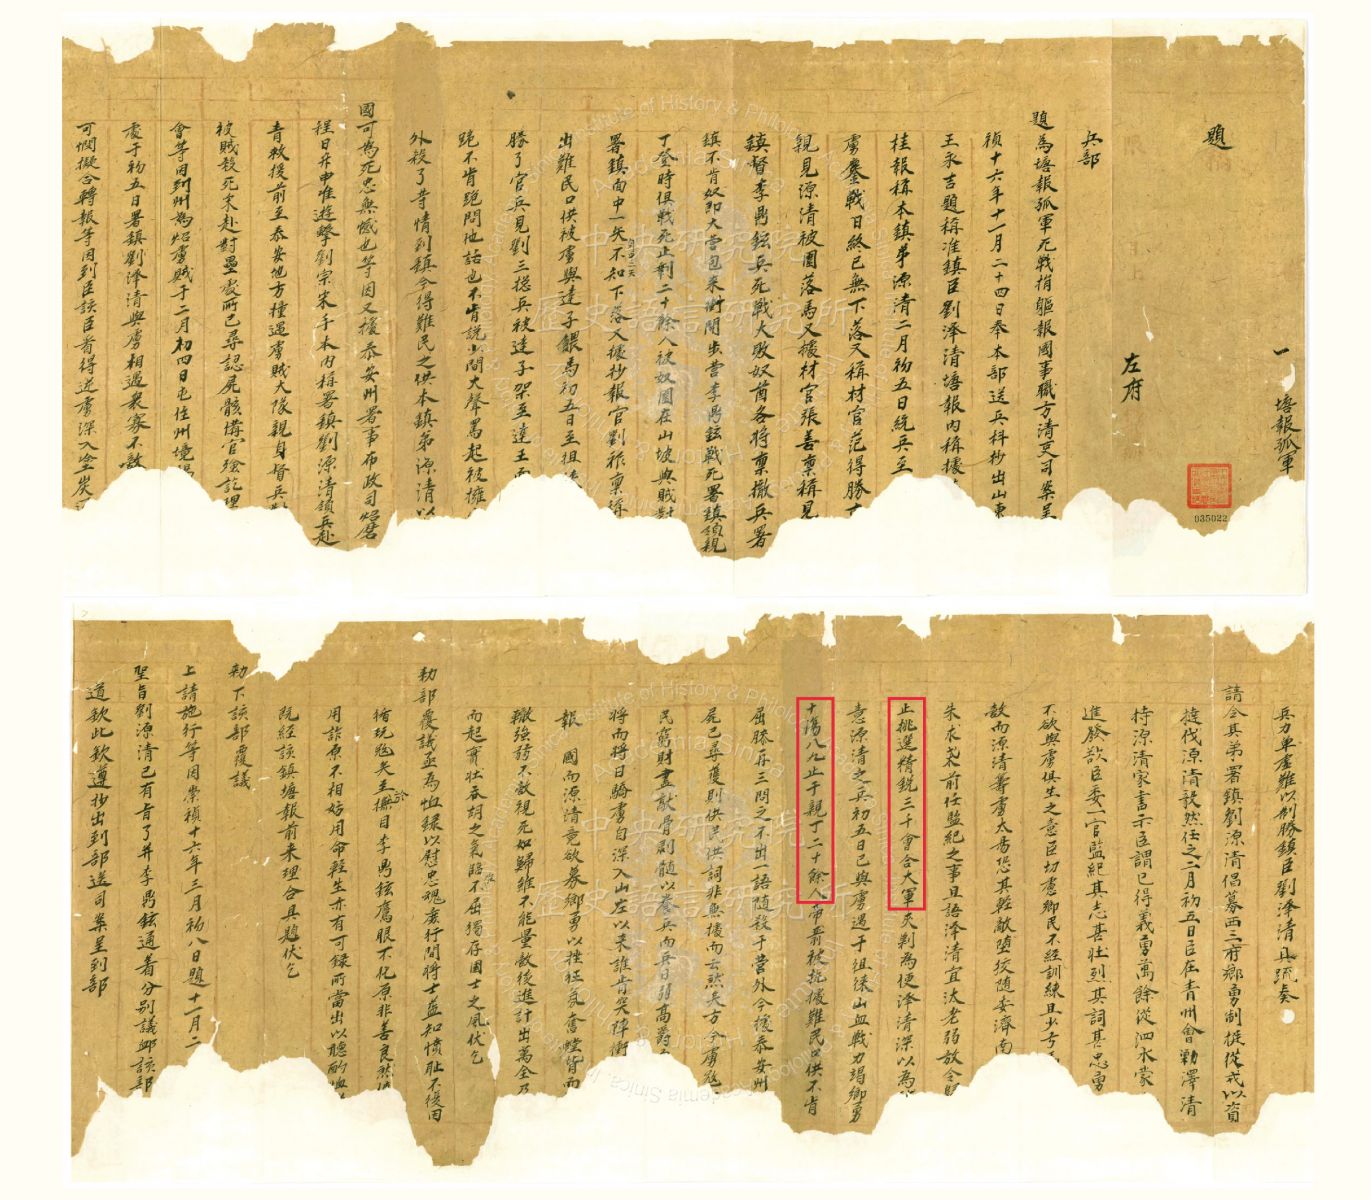 題
一
塘報孤軍
左府
兵部
題為塘報孤軍死戰捐軀報國事職方清吏司案呈
禎十六年十一月二十四日奉本部送兵科抄出山東
王永吉題稱准鎮臣劉澤清塘報內稱據
桂報稱本鎮弟源清二月初五日統兵至
虜鏖戰日終已無下落又稱材官范得勝
親見源清被圍落馬又據材官張善稟稱見
鎮督李勇鋐兵死戰大敗奴酋各將稟撤兵署
鎮不肯奴即大營包來衝開步營李勇鋐戰死署鎮領親
丁登時俱戰死止剩二十餘人被奴圍在山坡與賊對
署鎮面中一矢不知下落又據抄報官劉稟稱
出難民口供被虜與達子餵馬初五日至徂徠
勝了官兵見劉三總兵被達子架至達王面
跪不肯跪問他話也不肯說少間大聲罵起被擁
外殺了等情到鎮今得難民之供本鎮弟源清以
國可為死忠無憾也等因又據泰安州署事布政司炤磨
程日升申准遊擊劉宗宋手本內稱署鎮劉源清領兵赴
青救援前至泰安地方撞遇虜賊大隊親身督兵
被賊殺死宋赴對壘處所已尋認屍骸備官殮訖理
會等因到州為炤虜賊于二月初四日屯住州境
處于初五日署鎮劉源清與虜相遇衆寡不敵
可憫擬合轉報等因到臣該臣看得逆虜深入塗炭
兵力單虛難以制勝鎮臣劉澤清具疏奏
請令其弟署鎮劉源清倡募西三府鄉勇制梃從戎以資
撻伐源清毅然任之二月初五日臣在青州會勦澤清
持源清家書示臣謂已得義勇萬餘從泗水蒙
進發欲臣委一官監紀其志甚壯烈其詞甚忠勇
不欲與虜俱生之意臣切慮鄉民不經訓練且少弓
敵而源清籌虜太易恐其輕敵墮狡隨委濟南
朱求前任監紀之事且語澤清宜汰老弱放令歸
止挑選精銳三千會合大軍夾剿為便澤清深以為
意源清之兵初五日已與虜遇于徂徠山血戰力竭鄉勇
十傷八九止于親丁二十餘人帶箭被抗據難民口供不肯
屈膝再三問之不出一語隨殺于營外今據泰安州
屍已尋獲則供民供詞非無據而云然矣方今虜寇
民窮財盡敲骨剔髓以養兵而兵日弱高爵
將而將日驕虜自深入山左以來誰肯突陣衝
報 國而源清竟欲募鄉勇以挫狂氛奮螳臂而
轍強弱不敵視死如歸雖不能量敵後進計出萬全乃
而起實壯吞胡之氣臨不屈獨存國士之風伏乞
勅部覆議亟為恤錄以慰忠魂庶行間將士益知憤恥不復因
循玩寇矣至於參目李勇鋐鷹眼不化原非善良然
用詐原不相妨用命輕生亦有可錄所當出以聽酌恤
既經該鎮塘報前來理合具題伏乞
勅下該部覆議
上請施行等因崇禎十六年三月初八日題十一月二
聖旨劉源清已有旨了并李勇鋐通着分別議卹該部
道欽此欽遵抄出到部送司案呈到部
035022
中央研究院
歷史語言研究所
Institute of History & Philology
Academia Sinica